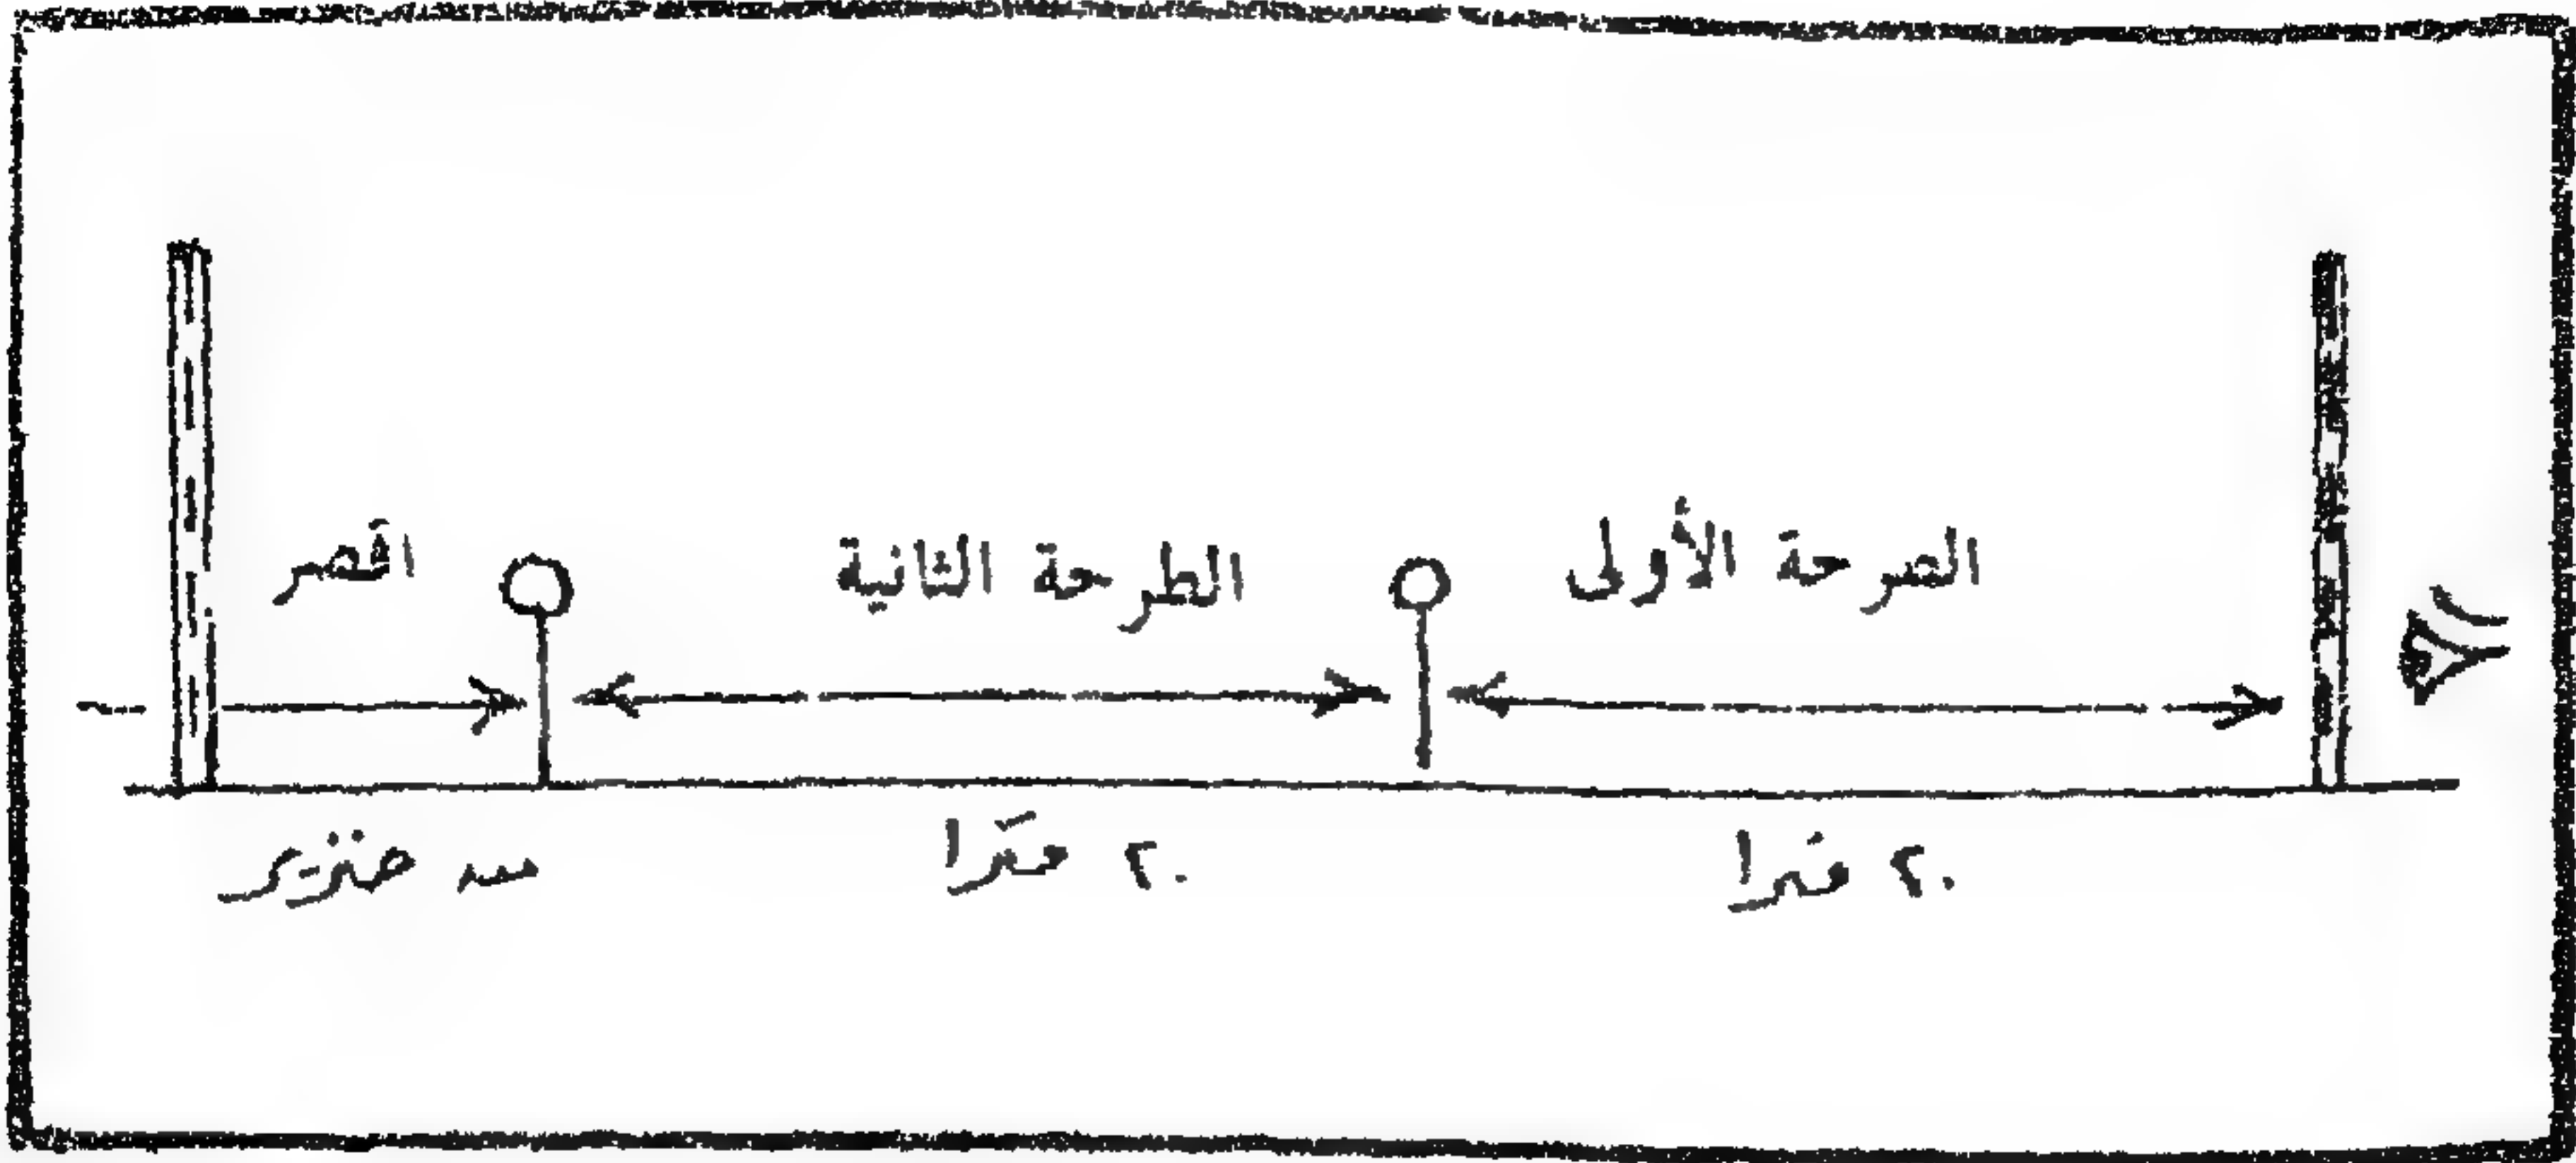 الصرحة الأولى
الطرحة الثانية
اقصر
٢٠ مترا
٢٠ مترا